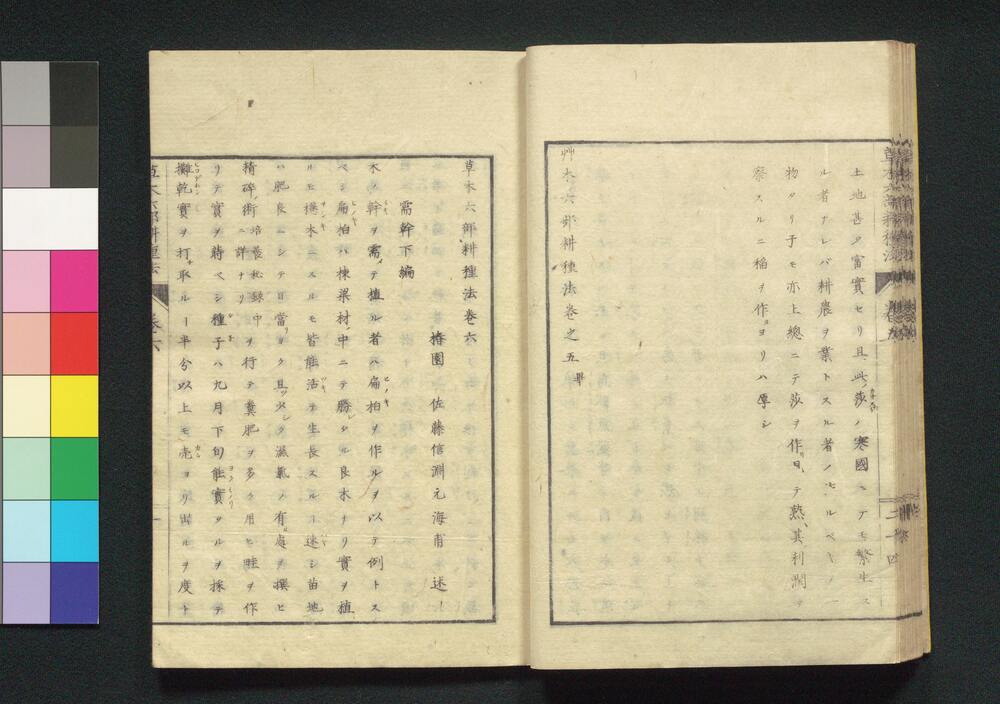 土地甚タ富實セリ且此莎ノ寒國ニテモ繁生ス
ル者ナレバ耕農ヲ業トスル者ノ作ルベキノ一
物タリ予モ亦上總ニテ莎ヲ作リ日テ熟其利潤ヲ
察スルニ稲ヲ作ヨリハ厚シ
艸木六部耕種法巻之五畢
二十四
草木六部耕種法巻六
椿園 佐藤信淵元海甫 述
需幹下編
木ノ幹ヲ需テ植ル者ハ扁柏ヲ作ルヲ以テ例トス
ベシ扁柏ハ棟梁材ノ中ニテ勝タル良木ナリ實ヲ植
ルモ揷木ニスルモ皆能活テ生長スルコ速シ苗地
ハ肥良ニシテ日當リヨク且ツ少シク濕氣ノ有處ヲ撰ヒ
精碎術培養秘録中ニ詳ナリヲ行テ糞肥ヲ多ク用ヒ畦ヲ作
リテ實ヲ蒔ベシ種子ハ九月下旬能實タルヲ採テ
攤乾實ヲ打取ルコ半分以上モ売ヨリ出ルヲ度ト
草木六部耕種法 巻六
一